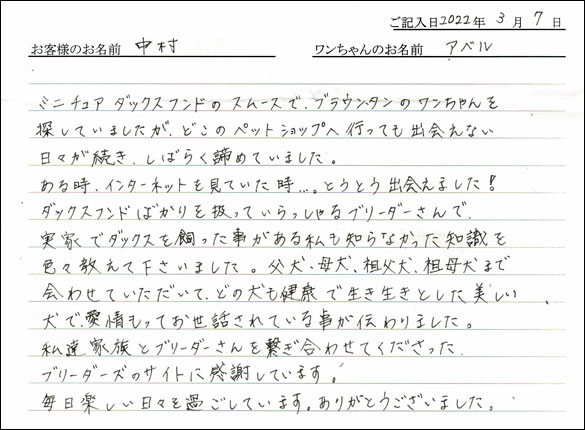 ご記入日2022年 3月 7日
お客様のお名前 中村 ワンちゃんのお名前 アベル
ミニチュア ダックスフンドの スムースで、ブラウンタンの ワンちゃんを
探していましたが、どこの ペットショップへ 行っても 出会えない
日々が 続き、しばらく 諦めていました。
ある時、インターネットを 見ていた 時…。とうとう 出会えました!
ダックスフンド ばかりを 扱って いらっしゃる ブリーダーさんで、
実家で ダックスを 飼った 事が ある 私も 知らなかった 知識を
色々 教えて 下さいました。父犬、母犬、祖父犬、祖母犬まで
会わせて いただいて、どの犬も 健康で 生き生きとした 美しい
犬で、愛情もって お世話されている 事が 伝わりました。
私達 家族と ブリーダーさんを 繋ぎ 合わせて くださった、
ブリーダーズの サイトに 感謝しています。
毎日 楽しい 日々を 過ごしています。ありがとうございました。